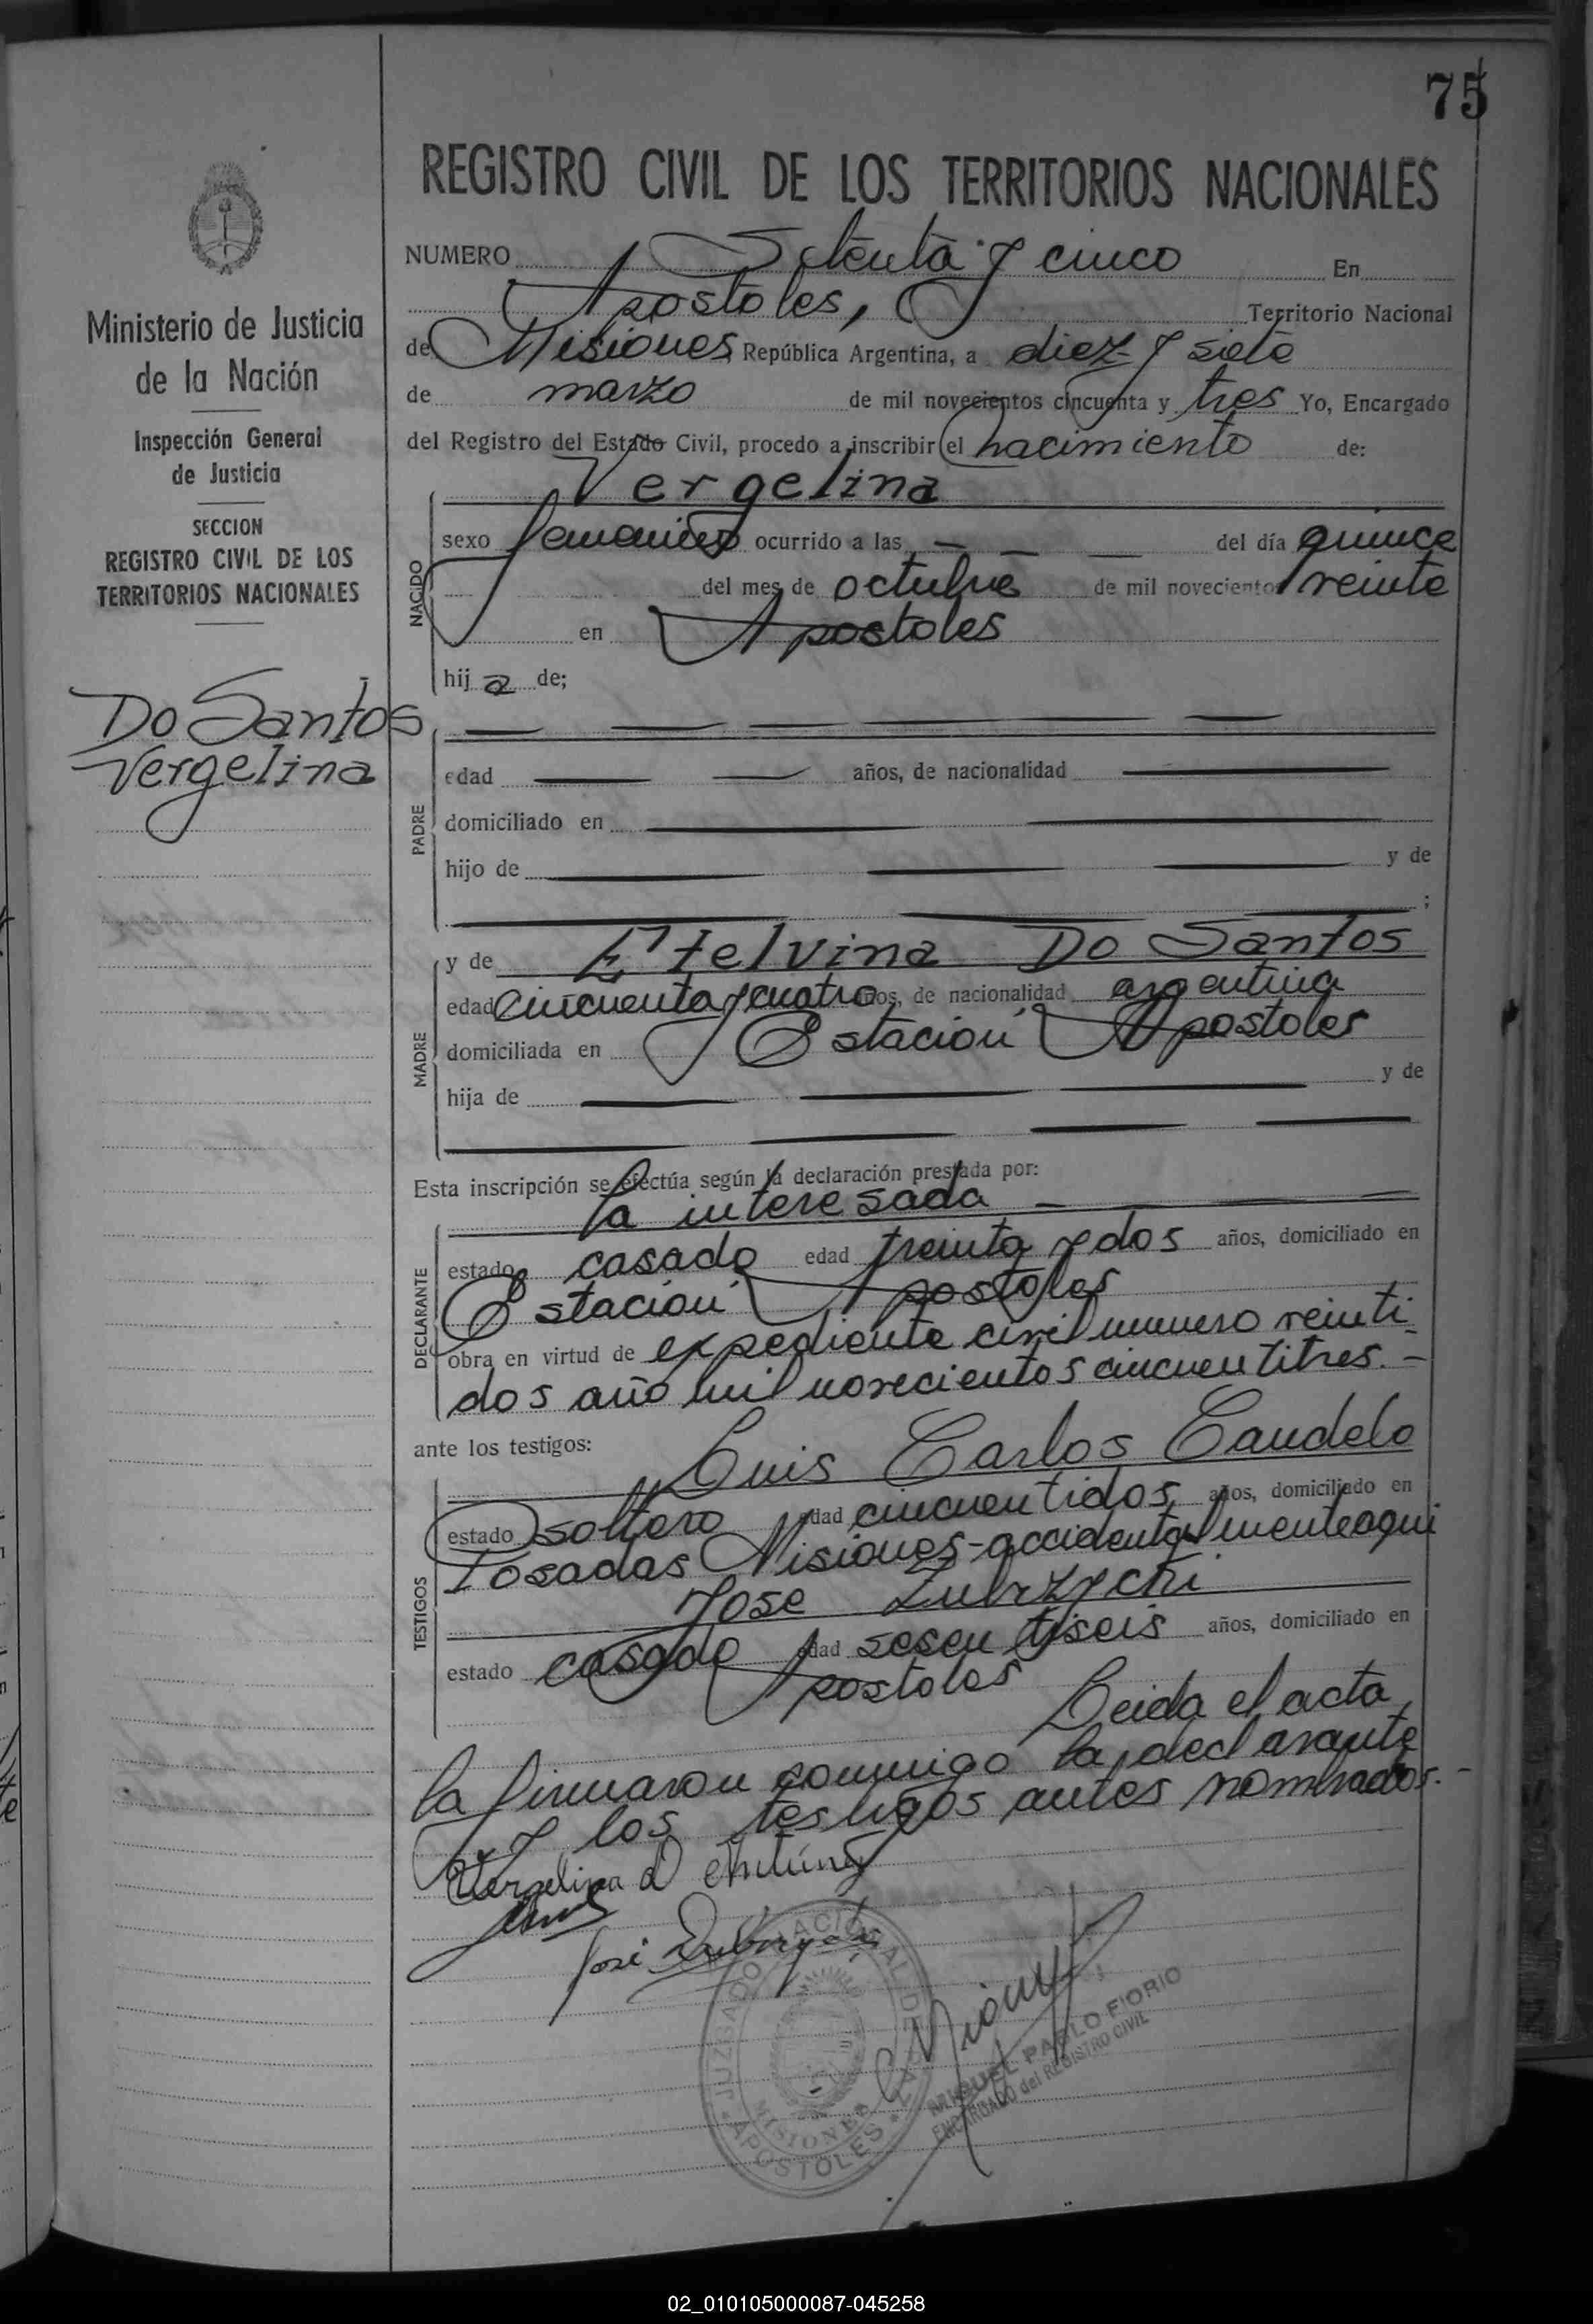 75
REGISTRO CIVIL DE LOS TERRITORIOS NACIONALES
Ministerio de Justicia
de la Nación
Inspección General
de Justicia
SECCION
REGISTRO CIVIL DE LOS
TERRITORIOS NACIONALES
Do Santos
Vergelina
NUMERO Setenta y cinco En
Apostoles, Territorio Nacional
de Misiones República Argentina, a diez y siete
de marzo de mil novecientos cincuenta y tres Yo, Encargado
del Registro del Estado Civil, procedo a inscribir el nacimiento de:
Vergelina
NACIDO
sexo femenino ocurrido a las — — — del día quince
del mes de octubre de mil novecientos veinte
en Apostoles
hij a de;
PADRE
edad años, de nacionalidad
domiciliado en
hijo de y de
;
MADRE
y de Etelvina Do Santos
edad cincuenta y cuatro años, de nacionalidad argentina
domiciliada en Estación Apostoles
hija de y de
Esta inscripción se efectúa según la declaración prestada por:
la interesada
DECLARANTE
estado casado edad treinta y dos años, domiciliado en
Estación Apostoles
obra en virtud de expediente civil numero veinti
dos año mil novecientos cincuentitres.-
ante los testigos:
Luis Carlos Candelo
TESTIGOS
estado soltero edad cincuentidos años, domiciliado en
Posadas Misiones-accidentalmente aqui
Jose Zubrzycki
estado casado edad sesentiseis años, domiciliado en
Apostoles Leida el acta
la firmaron conmigo la declarante
y los testigos antes nombrados.-
Vergelina D
José Zubrzycki
JUZGADO NACIONAL DE PAZ
MISIONES
APOSTOLES
MIGUEL PABLO FIORIO
ENCARGADO del REGISTRO CIVIL
02_010105000087-045258